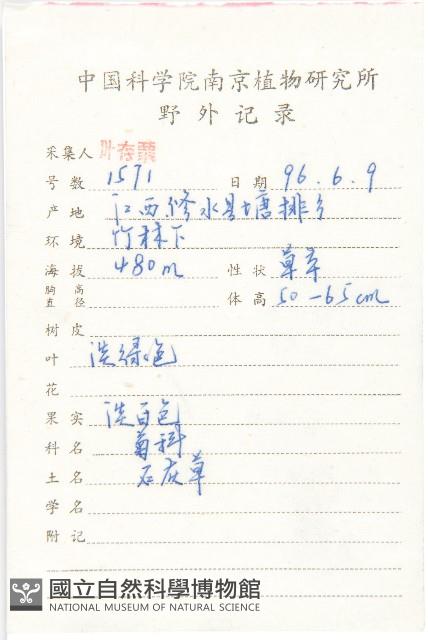 中国科学院南京植物研究所
野外记录
采集人
号数 1571 日期 96.6.9
产地 江西修水县塘排乡
环境 竹林下
海拔 480m 性状 草本
胸高直径 体高 50-65cm
树皮
叶 淡绿色
花
果实 淡百色
科名 菊科
土名 石灰草
学名
附记
國立自然科學博物館
NATIONAL MUSEUM OF NATURAL SCIENCE